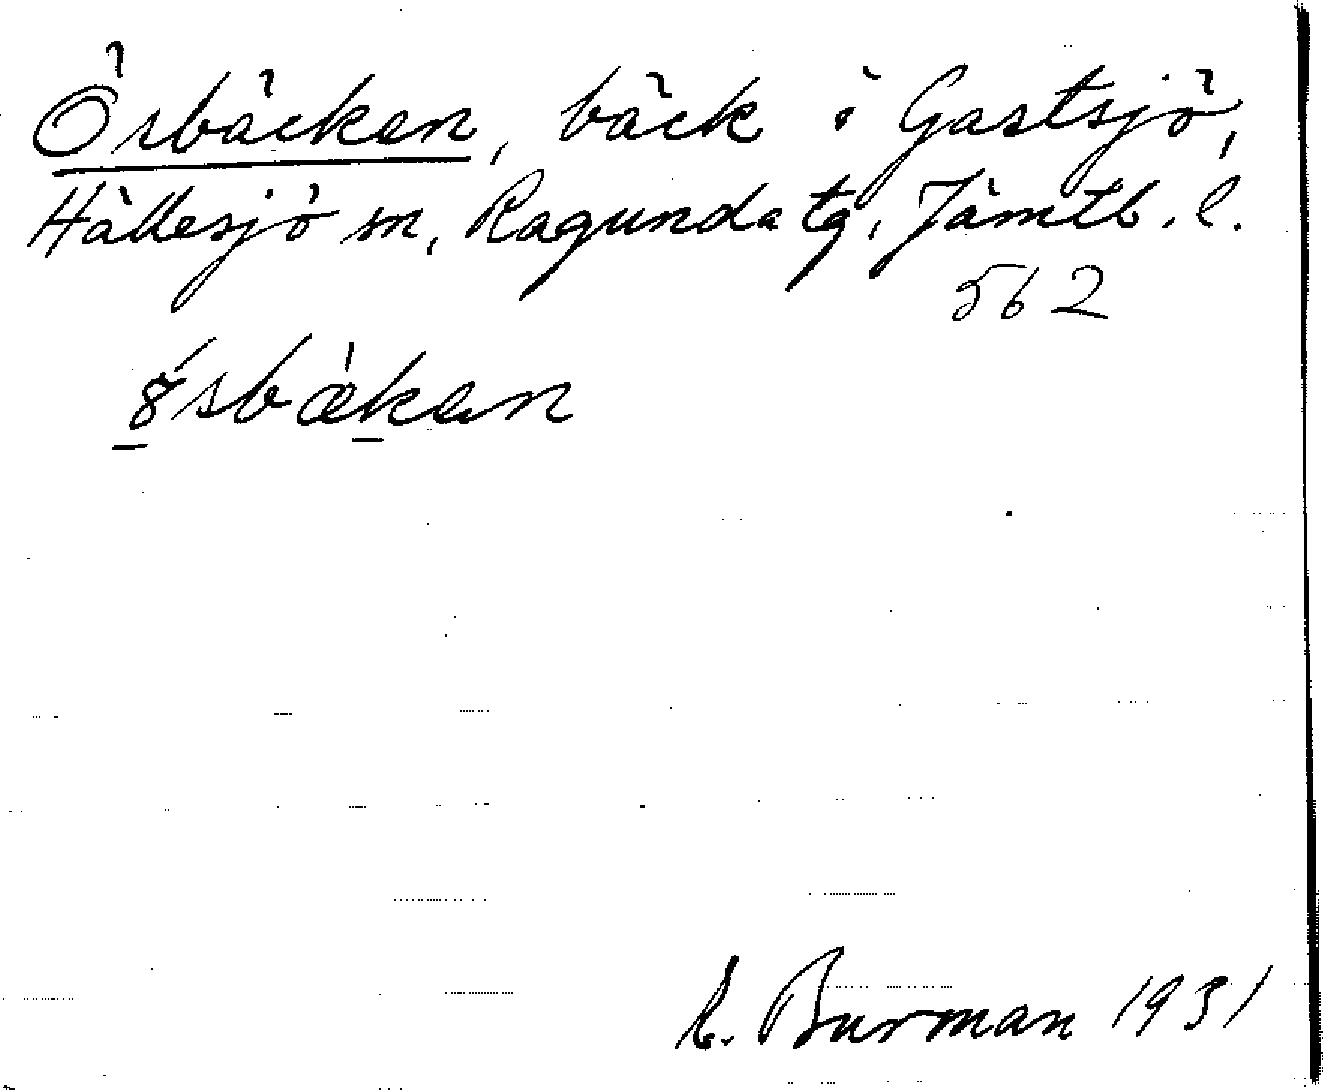 Örbäcken, bäck i Gastsjö,
Hällesjö sn, Ragunda tg, Jämtl. l.
562
R. Burman 1931